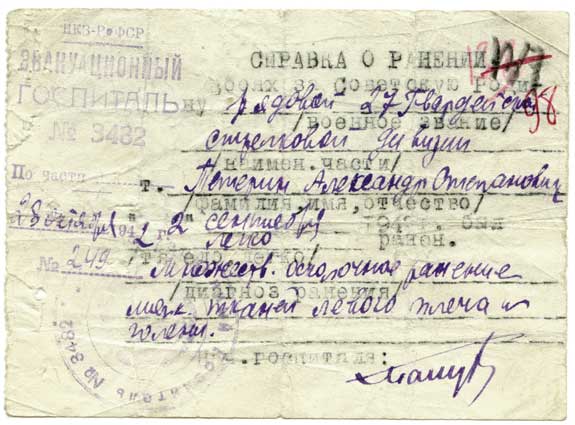 НКЗ-РСФСР
ЭВАКУАЦИОННЫЙ
ГОСПИТАЛЬ
№ 3482
По части
28 октября 1942 г.
№ 249
СПРАВКА О РАНЕНИИ
боях за Советскую
рядовой 27 Гвардейск
/военное звание/
стрелковой дивизии
/наимен.части/
т. Петерин Александр Степанович
/фамилия,имя,отчество/
2 сентября 194 . был
легко ранен.
/тяжело,легко/
Множеств. осколочное ранение
/диагноз ранения/
мягк. тканей левого плеча и
голени.
госпиталя:
№ 3482